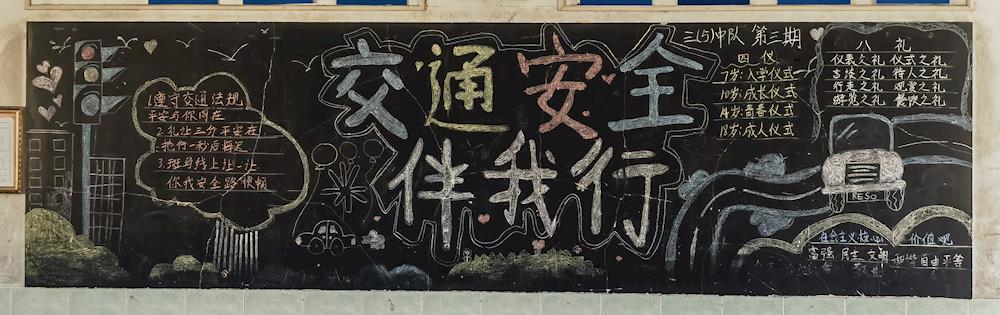 三(5)中队 第三期
交通安全
伴我行
1.遵守交通法规
平安与你同在
2.礼让三分平安在
抢行一秒后悔迟
3.斑马线上让一让
你我安全路顺畅
四仪
7岁:入学仪式
10岁:成长仪式
14岁:青春仪式
18岁:成人仪式
八礼
仪表之礼 仪式之礼
言谈之礼 待人之礼
行走之礼 观赏之礼
游览之礼 餐饮之礼
RESO
社会主义核心 价值观
富强 民主 文明 和谐 自由 平等